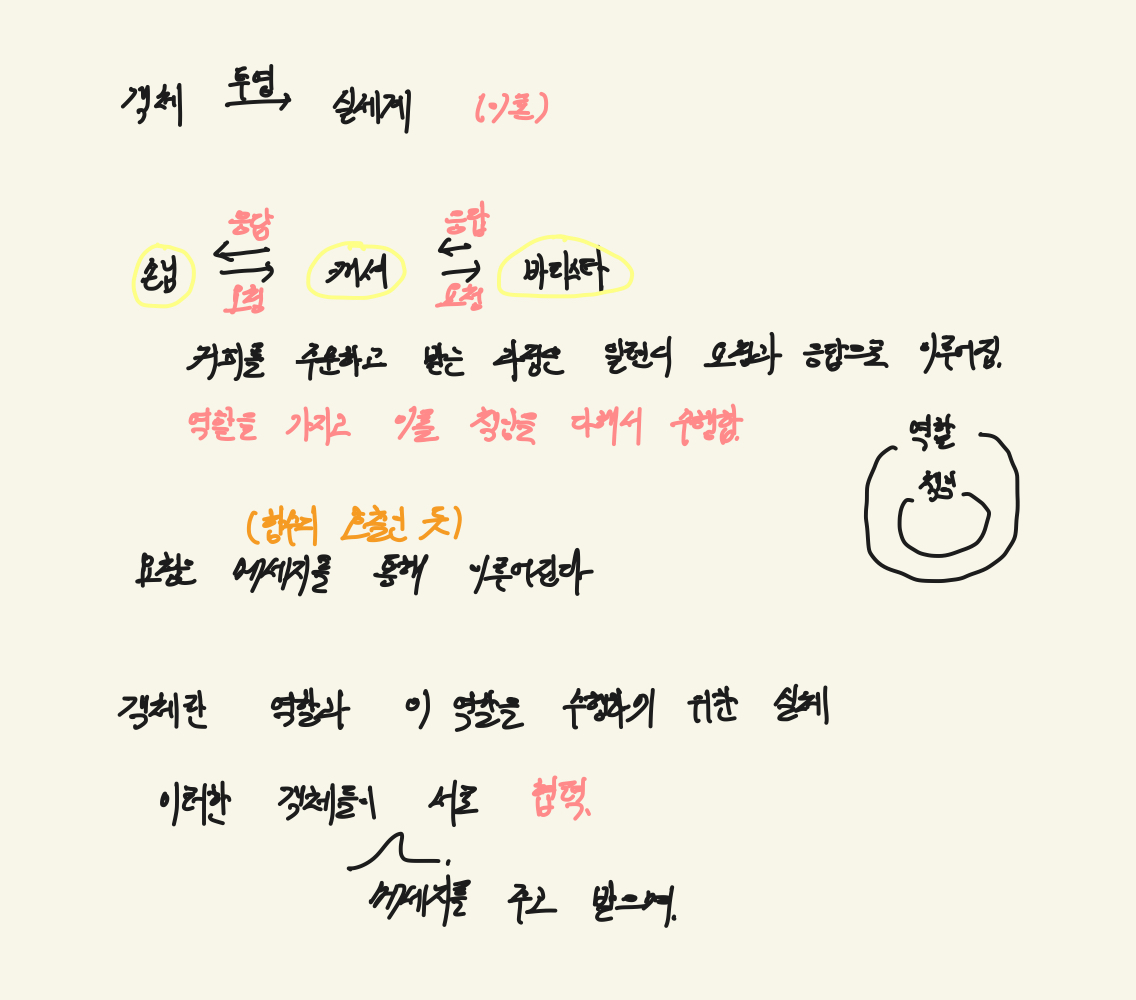 객체 투영 실세계 (이론)
응답 응답
손님 캐셔 바리스타
요청 요청
커피를 주문하고 받는 과정은 일련의 요청과 응답으로 이루어짐.
역할을 가지고 이를 책임을 다해서 수행함.
역할
책임
(함수의 호출인 듯)
요청은 메세지를 통해 이루어진다
객체란 역할과 이 역할을 수행하기 위한 실체
이러한 객체들이 서로 협력.
메세지를 주고 받으며.